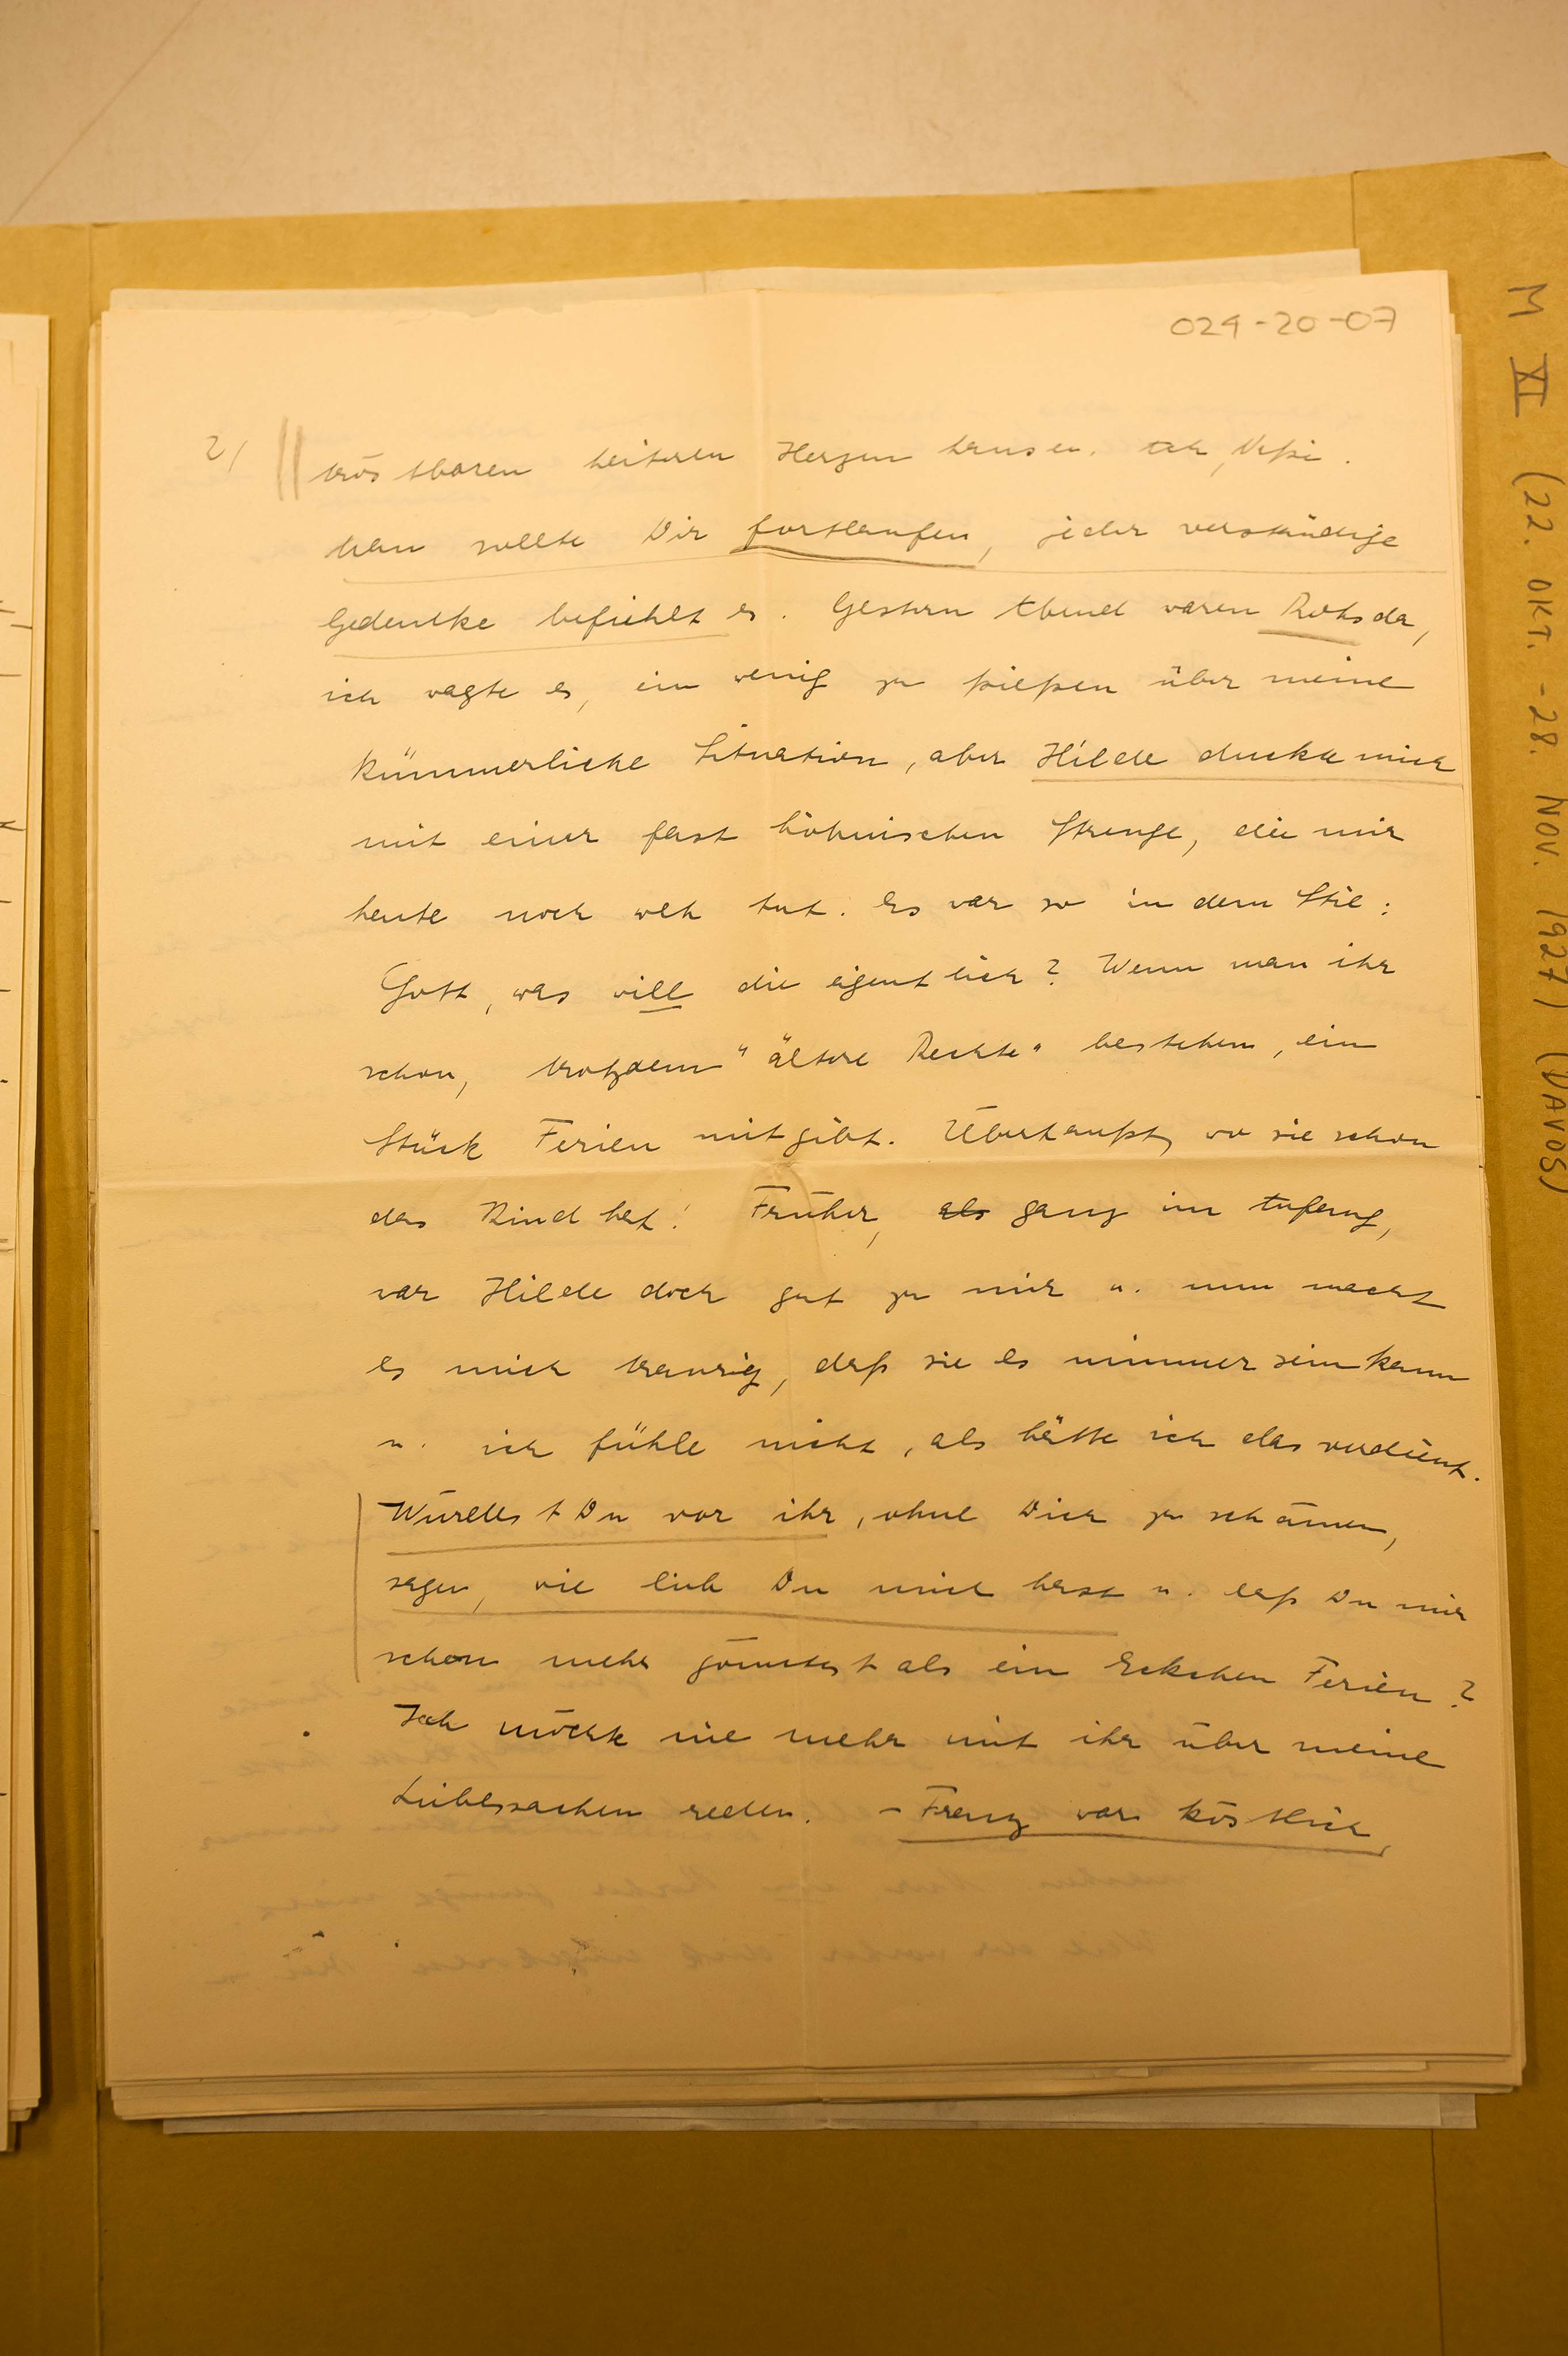 024-20-07
2/ tröstbaren heiteren Herzen hausen. Ach,
Man sollte Dir fortlaufen, jeder verständige
Gedanke befiehlt es. Gestern Abend waren Rohs da,
ich wagte es, ein wenig zu piepsen über meine
kümmerliche Situation, aber Hilde duckte mich
mit einer fast höhnischen Strenge, die mir
heute noch weh tut. Es war so in dem Stil:
Gott, was will die eigentlich? Wenn man ihr
schon, trotzdem "ältere Rechte" bestehen, ein
Stück Ferien mitgibt. Überhaupt, wo sie schon
das Kind hat! Früher, als ganz im Anfang,
war Hilde doch gut zu mir u. nun macht
es mich traurig, daß sie es nimmer sein kann
u. ich fühle nicht, als hätte ich das verdient.
Würdest Du vor ihr, ohne Dich zu schämen,
sagen, wie lieb Du mich hast u. daß Du mir
schon mehr gönntest als ein Eckchen Ferien?
Ich möchte nie mehr mit ihr über meine
Liebessachen reden. – Franz war köstlich,
M XI (22. OKT. - 28. NOV. 1927) (DAVOS)